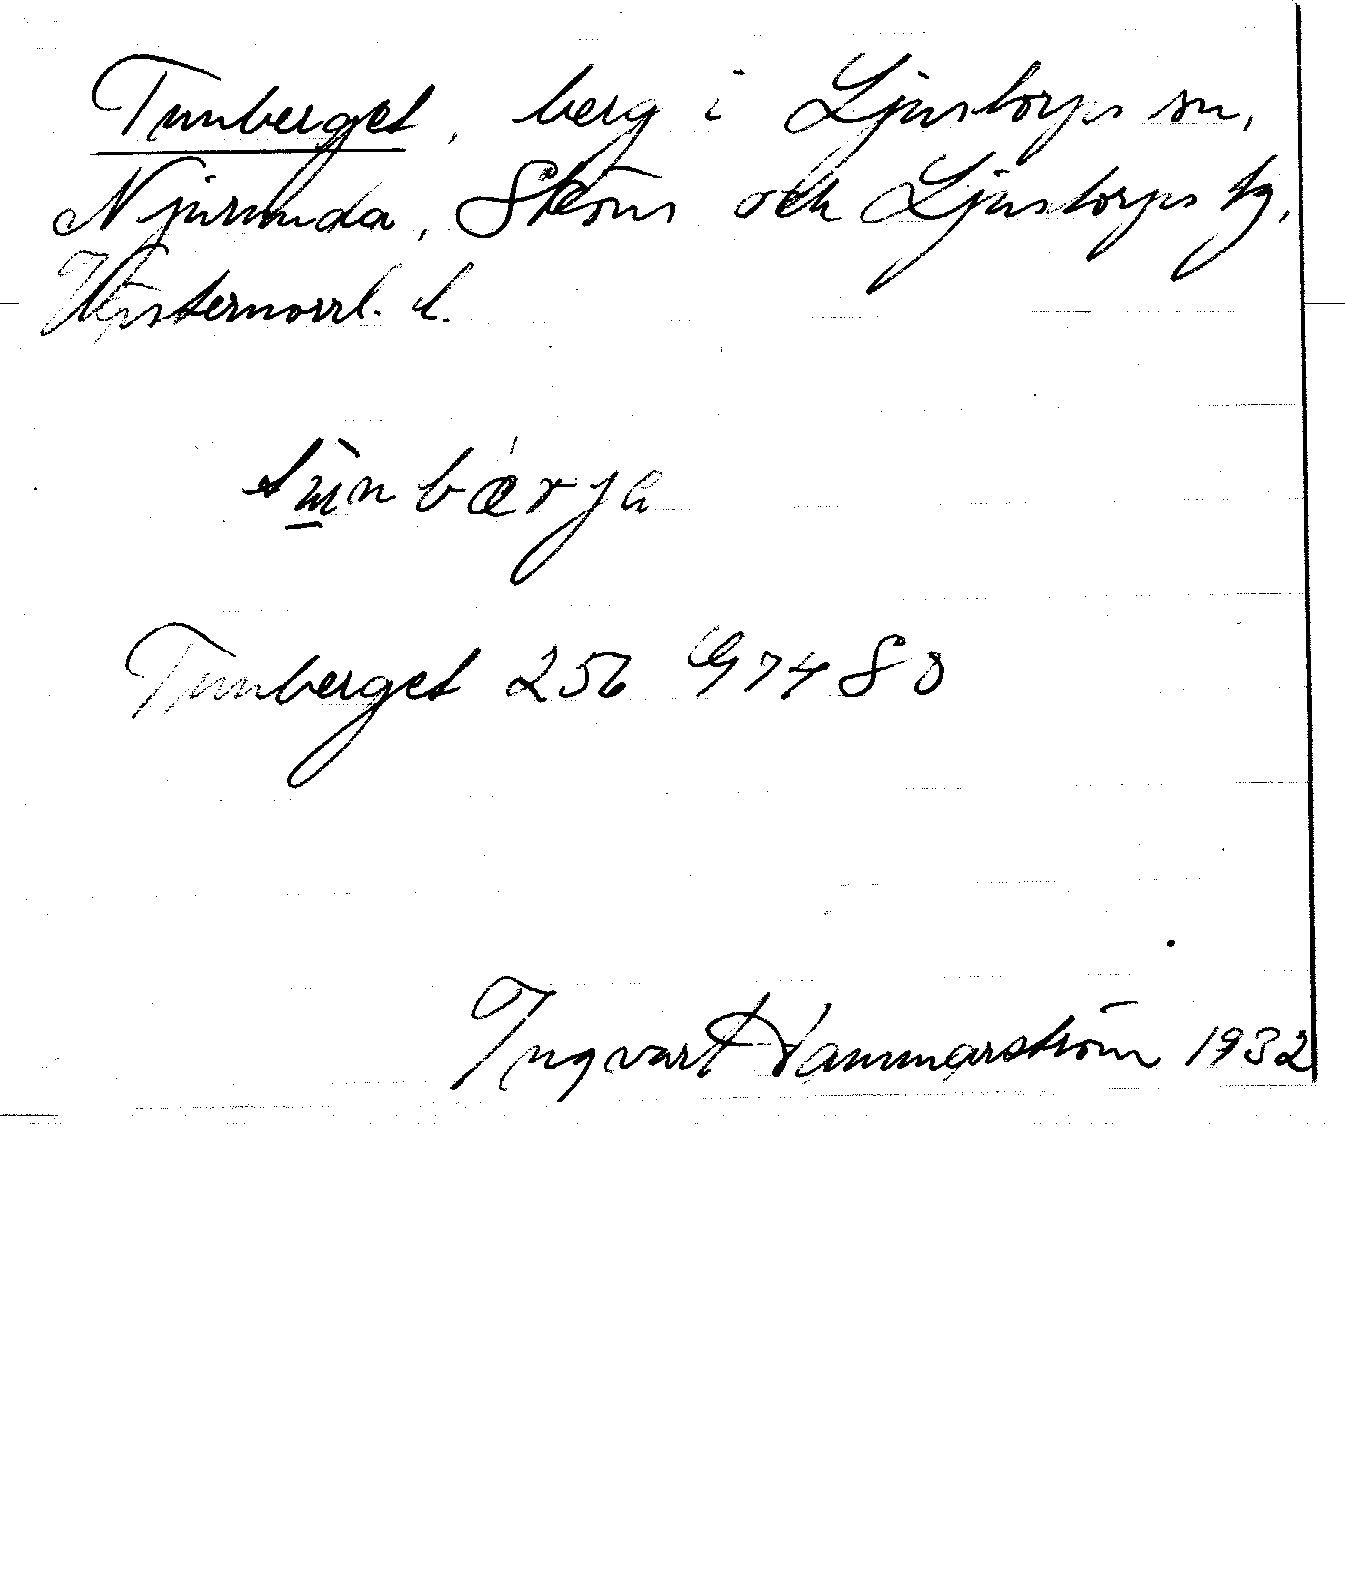 Tunberget, berg i Ljustorps sn,
Njurunda, Sköns och Ljustorps tg,
Västernorrl. l.
Tunberget 256 G 74 8 d
Ingvart Hammarström 1932